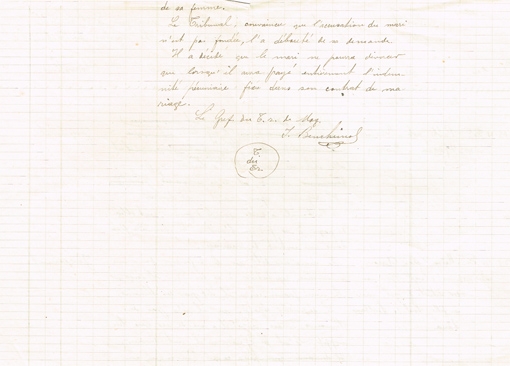 de sa femme.
Le Tribunal, convaincu que l'assertion du mari
n'est pas fondée, l'a débouté de sa demande.
Il a décidé que le mari ne pourra divorcer
que lorsqu'il aura payé entièrement l'indem-
nité pécuniaire fixée dans son contrat de ma-
riage.
Le Gref. du T. R. de Maz.
J. Benchimol
T.
du
Gr.